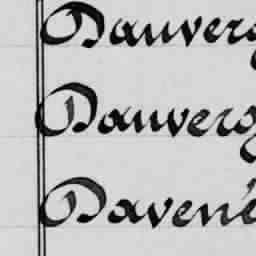 Dauverg
Dauverg
Davené